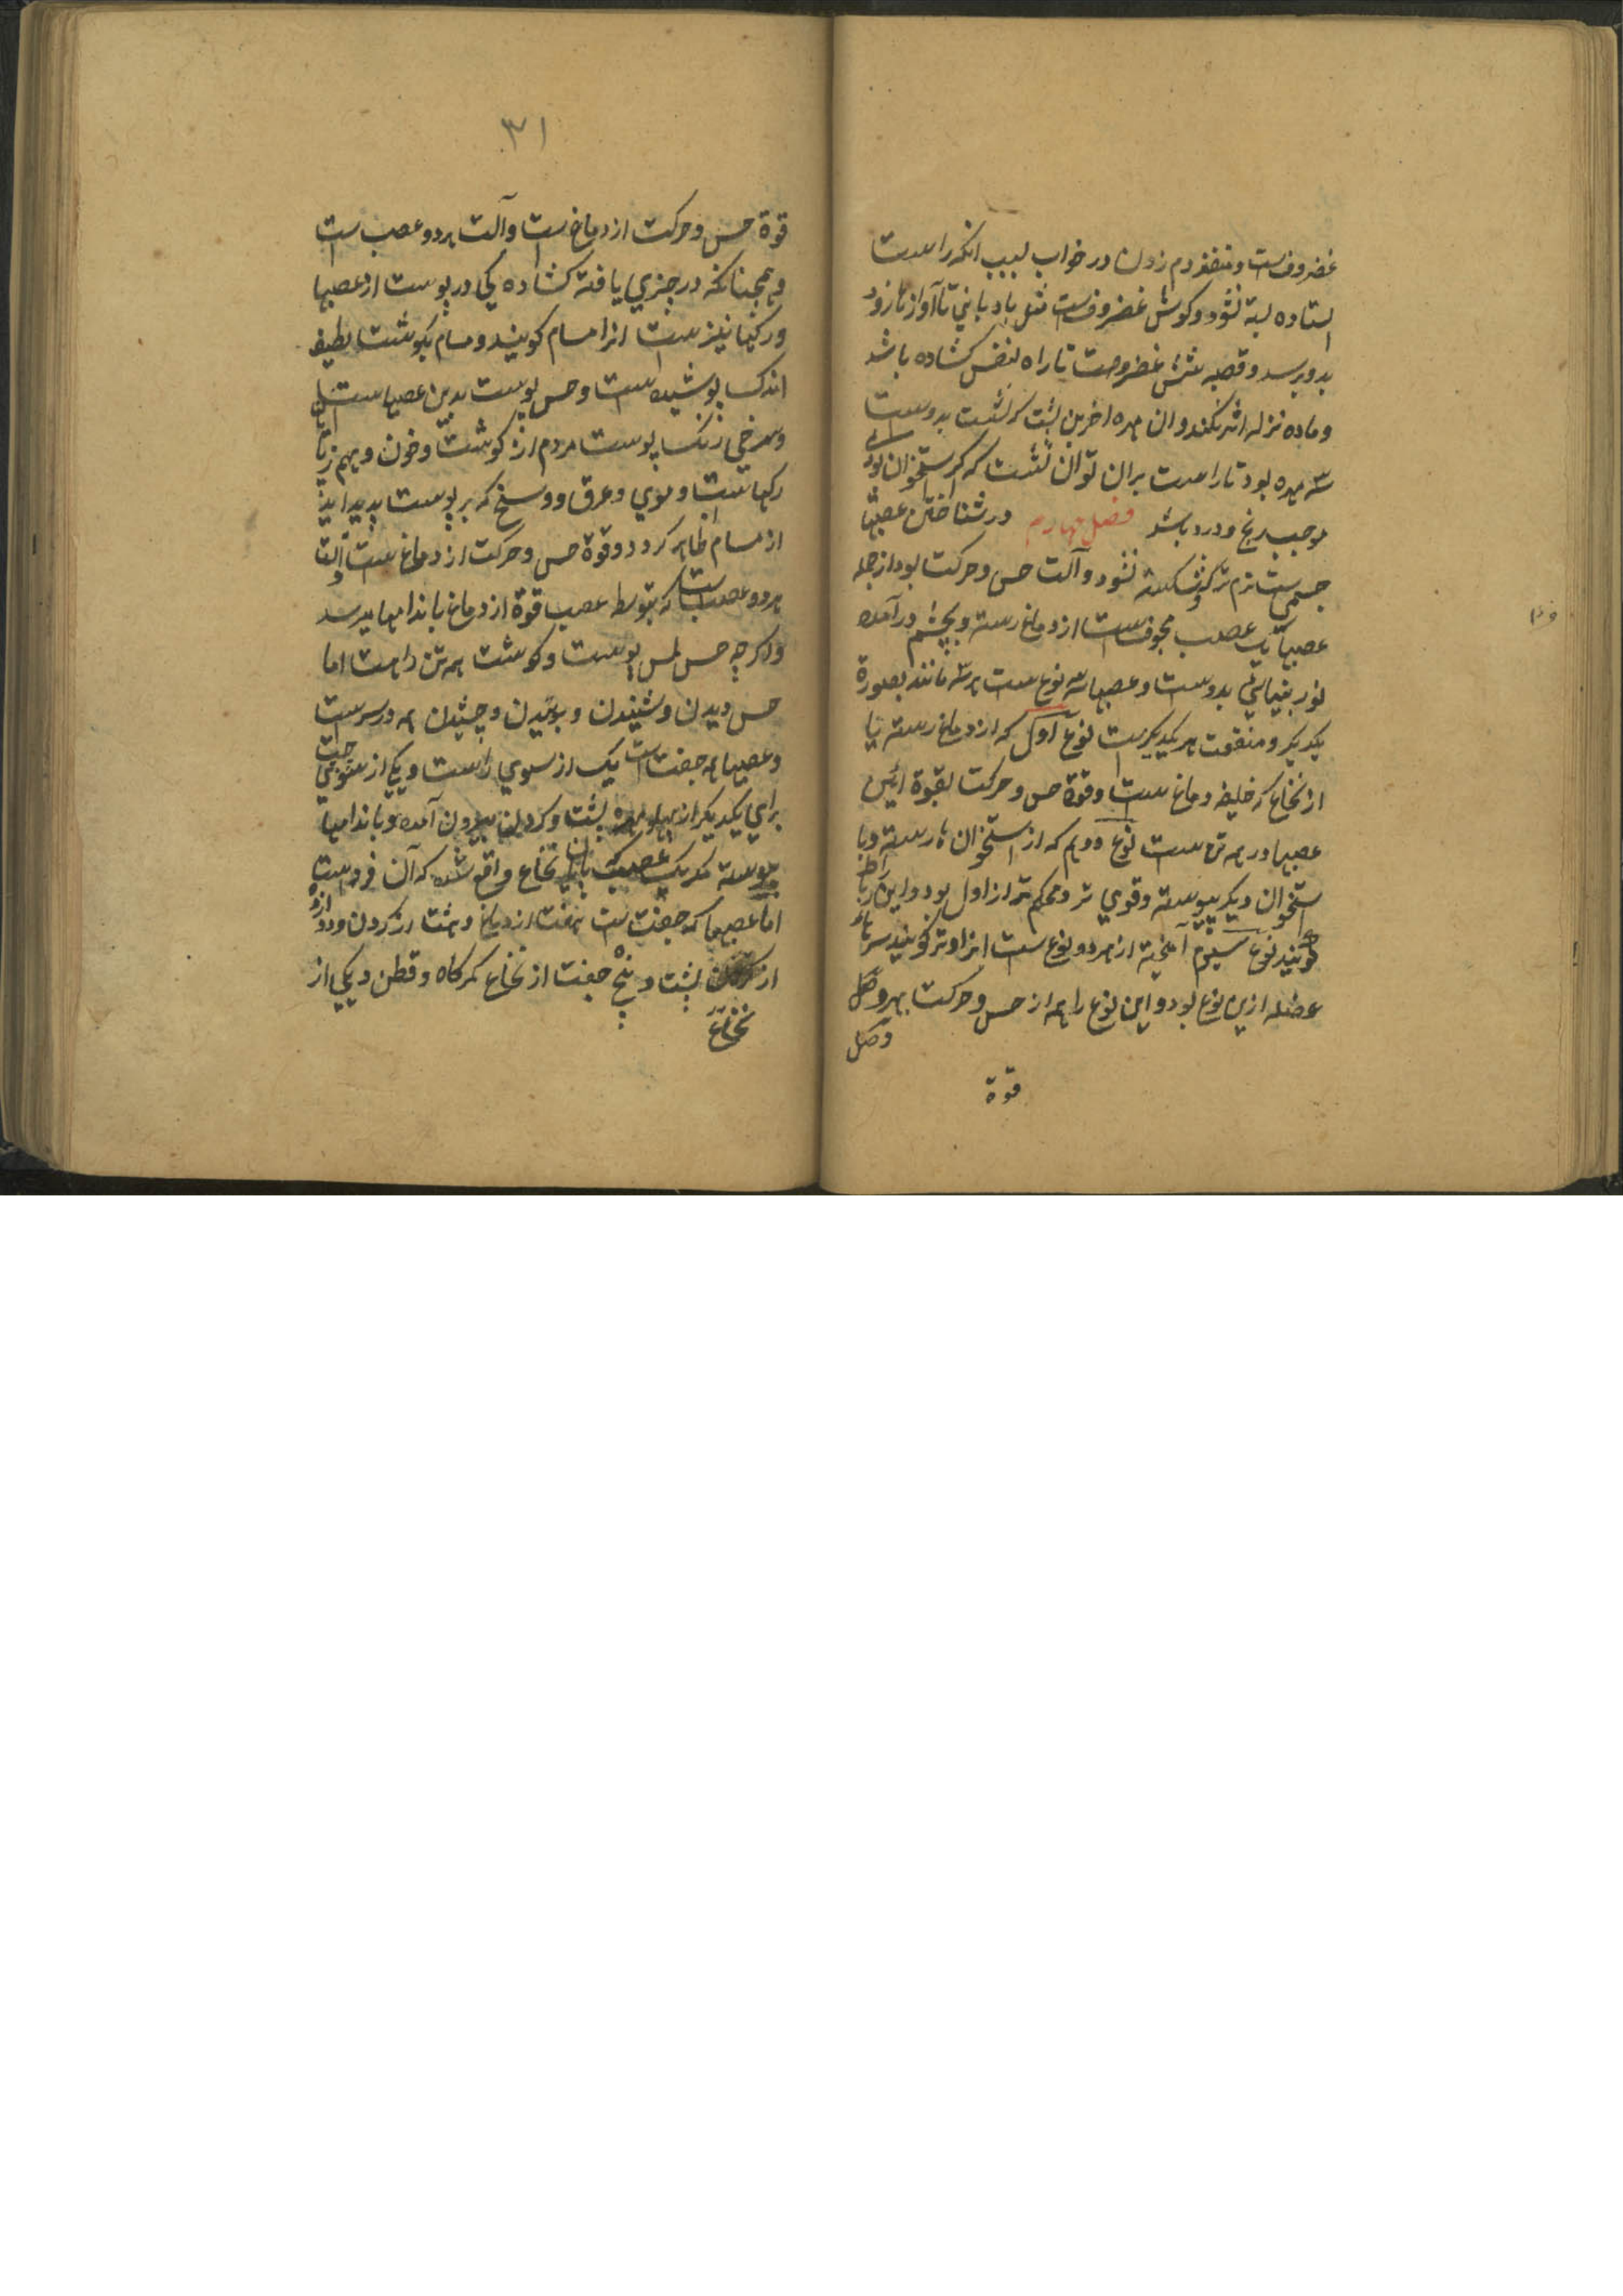 غضروفست و منفذ دم زدن در خواب بسبب انکه راست
استاده بسته نشود و کوش غضروفست مثل بادبانی تا آواز تا زود
بدو برسد و قصبه شش غضروفست تا راه نفس کشاده باشد
و ماده نزله اثر نکند و ان مهره اخرین پشت که نشست بدوست
سه مهره بود تا راست بران توان نشست که اکر استخوان بودی
موجب رنج و درد باشد فصل چهارم در شناختن عصبها
جسمی ست نرم ترکه شکسته نشود و آلت حس و حرکت بود از جمله
عصبها یک عصب مجوفست از دماغ رسته و بچشم درآمده
نور بینائی بدوست و عصبها سه نوع ست هر سه مانند بصورة
یکدیکر و منفعت هر یک دیکرست نوع اول که از دماغ رسته یا
از نخاع که خلیفه دماغ ست و قوة حس و حرکت بقوة این
عصبها در همه تن ست نوع دویم که از استخوان ها رسته و با
استخوان دیکر پیوسته و قوی تر و محکم تر از اول بود و این را رباط
کویند نوع سیوم آمیخته از هر دو نوع ست انرا وتر کویند سرهاء
عضله ازین نوع بود و این نوع را هم از حس و حرکت بهره
وکل
قوة
۳۱
قوة حس و حرکت از دماغ ست و آلت هر دو عصب ست
و همچنانکه در چیزی بافته کشادکی در پوست از عصبها
و رکها نیز ست انرا مسام کویند و مسام بکوشت لطیف
اندک پوشیده است و حس پوست بدین عصبهاست
و سرخی رنک پوست مردم از کوشت و خون و بهم
رکهاست و موی و عرق و وسخ که بر پوست پدید اید
از مسام ظاهر کردد و قوة حس و حرکت از دماغ ست و آلت
هر دو عصب است که بتوسط عصب قوة از دماغ باندامها میرسد
و اکرچه حس لمس پوست و کوشت همه تن راست اما
حس دیدن و شنیدن و بوئیدن و چشیدن همه در سرست
و عصبها همه جفت است یک از سوی راست و یکی از سوی چپ
برابر یکدیکر از مهره پشت و کردن بیرون آمده و باندامها
پیوسته مکر یک عصب که بپایان نخاع واقع شده که آن فردست
اما عصبها که جفت ست هفت از دماغ و هشت از کردن و دوازده
از پشت و پنج جفت از نخاع کمرکاه و قطن و یکی از
نخاع